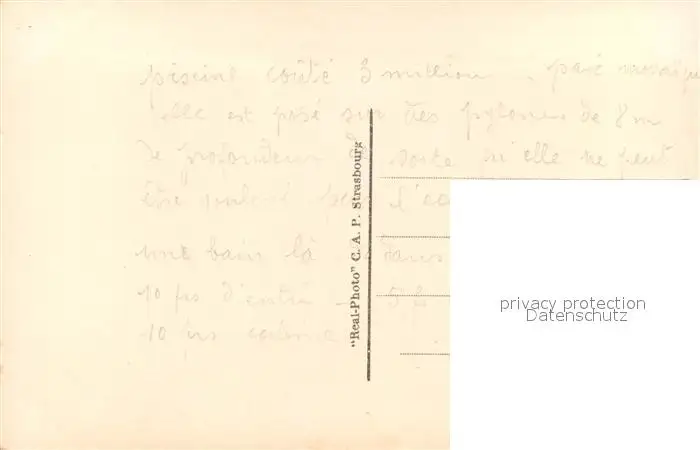 piscine coûté 3 million, pavé mosaïqu
elle est posé sur des pylones de 8 m
de profondeur de sorte qu'elle ne peut
être par l'ea
une bain là dans
10 frs d'entré 5 f
10 frs
"Real-Photo" C. A. P. Strasbourg
privacy protection
Datenschutz